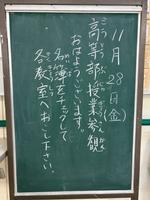 11月28日(金)
高等部授業参観
おはようございます。
名簿をチェックして
各教室へおこし下さい。